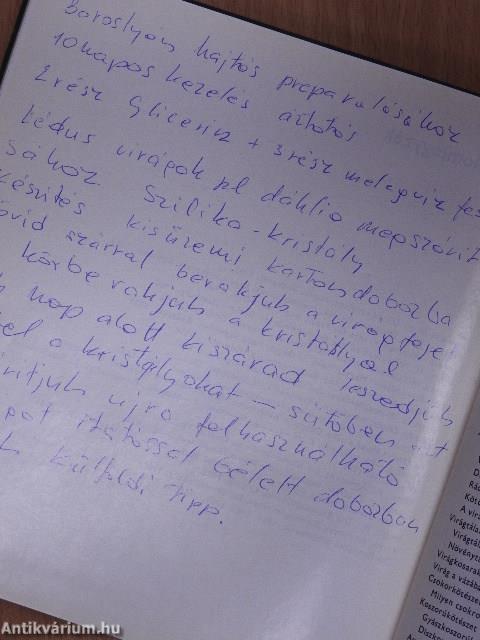 Borostyán hajtás preparálásához
10 napos kezelés áztatás
1 rész Glicerin + 3 rész melegvíz fes
Lédus virágok pl dáhlia megszárít
sához. Szilika-kristály
készítés kisüzemi kartondobozba
övid szárral berakjuk a virágfejei
körberakjuk a kristállyal
nap alatt kiszárad leszedjük
el a kristályokat – sütőben
rítjuk újra felhasználható
itatóssal bélelt dobozban
külföldi tipp.
Virágtála
Virágtál
Növényt
Virágkosarak
Virág a vázába
Csokorkötészet
Milyen csokro
Koszorúkötészet
Gyászkoszorú
Antikvárium.hu